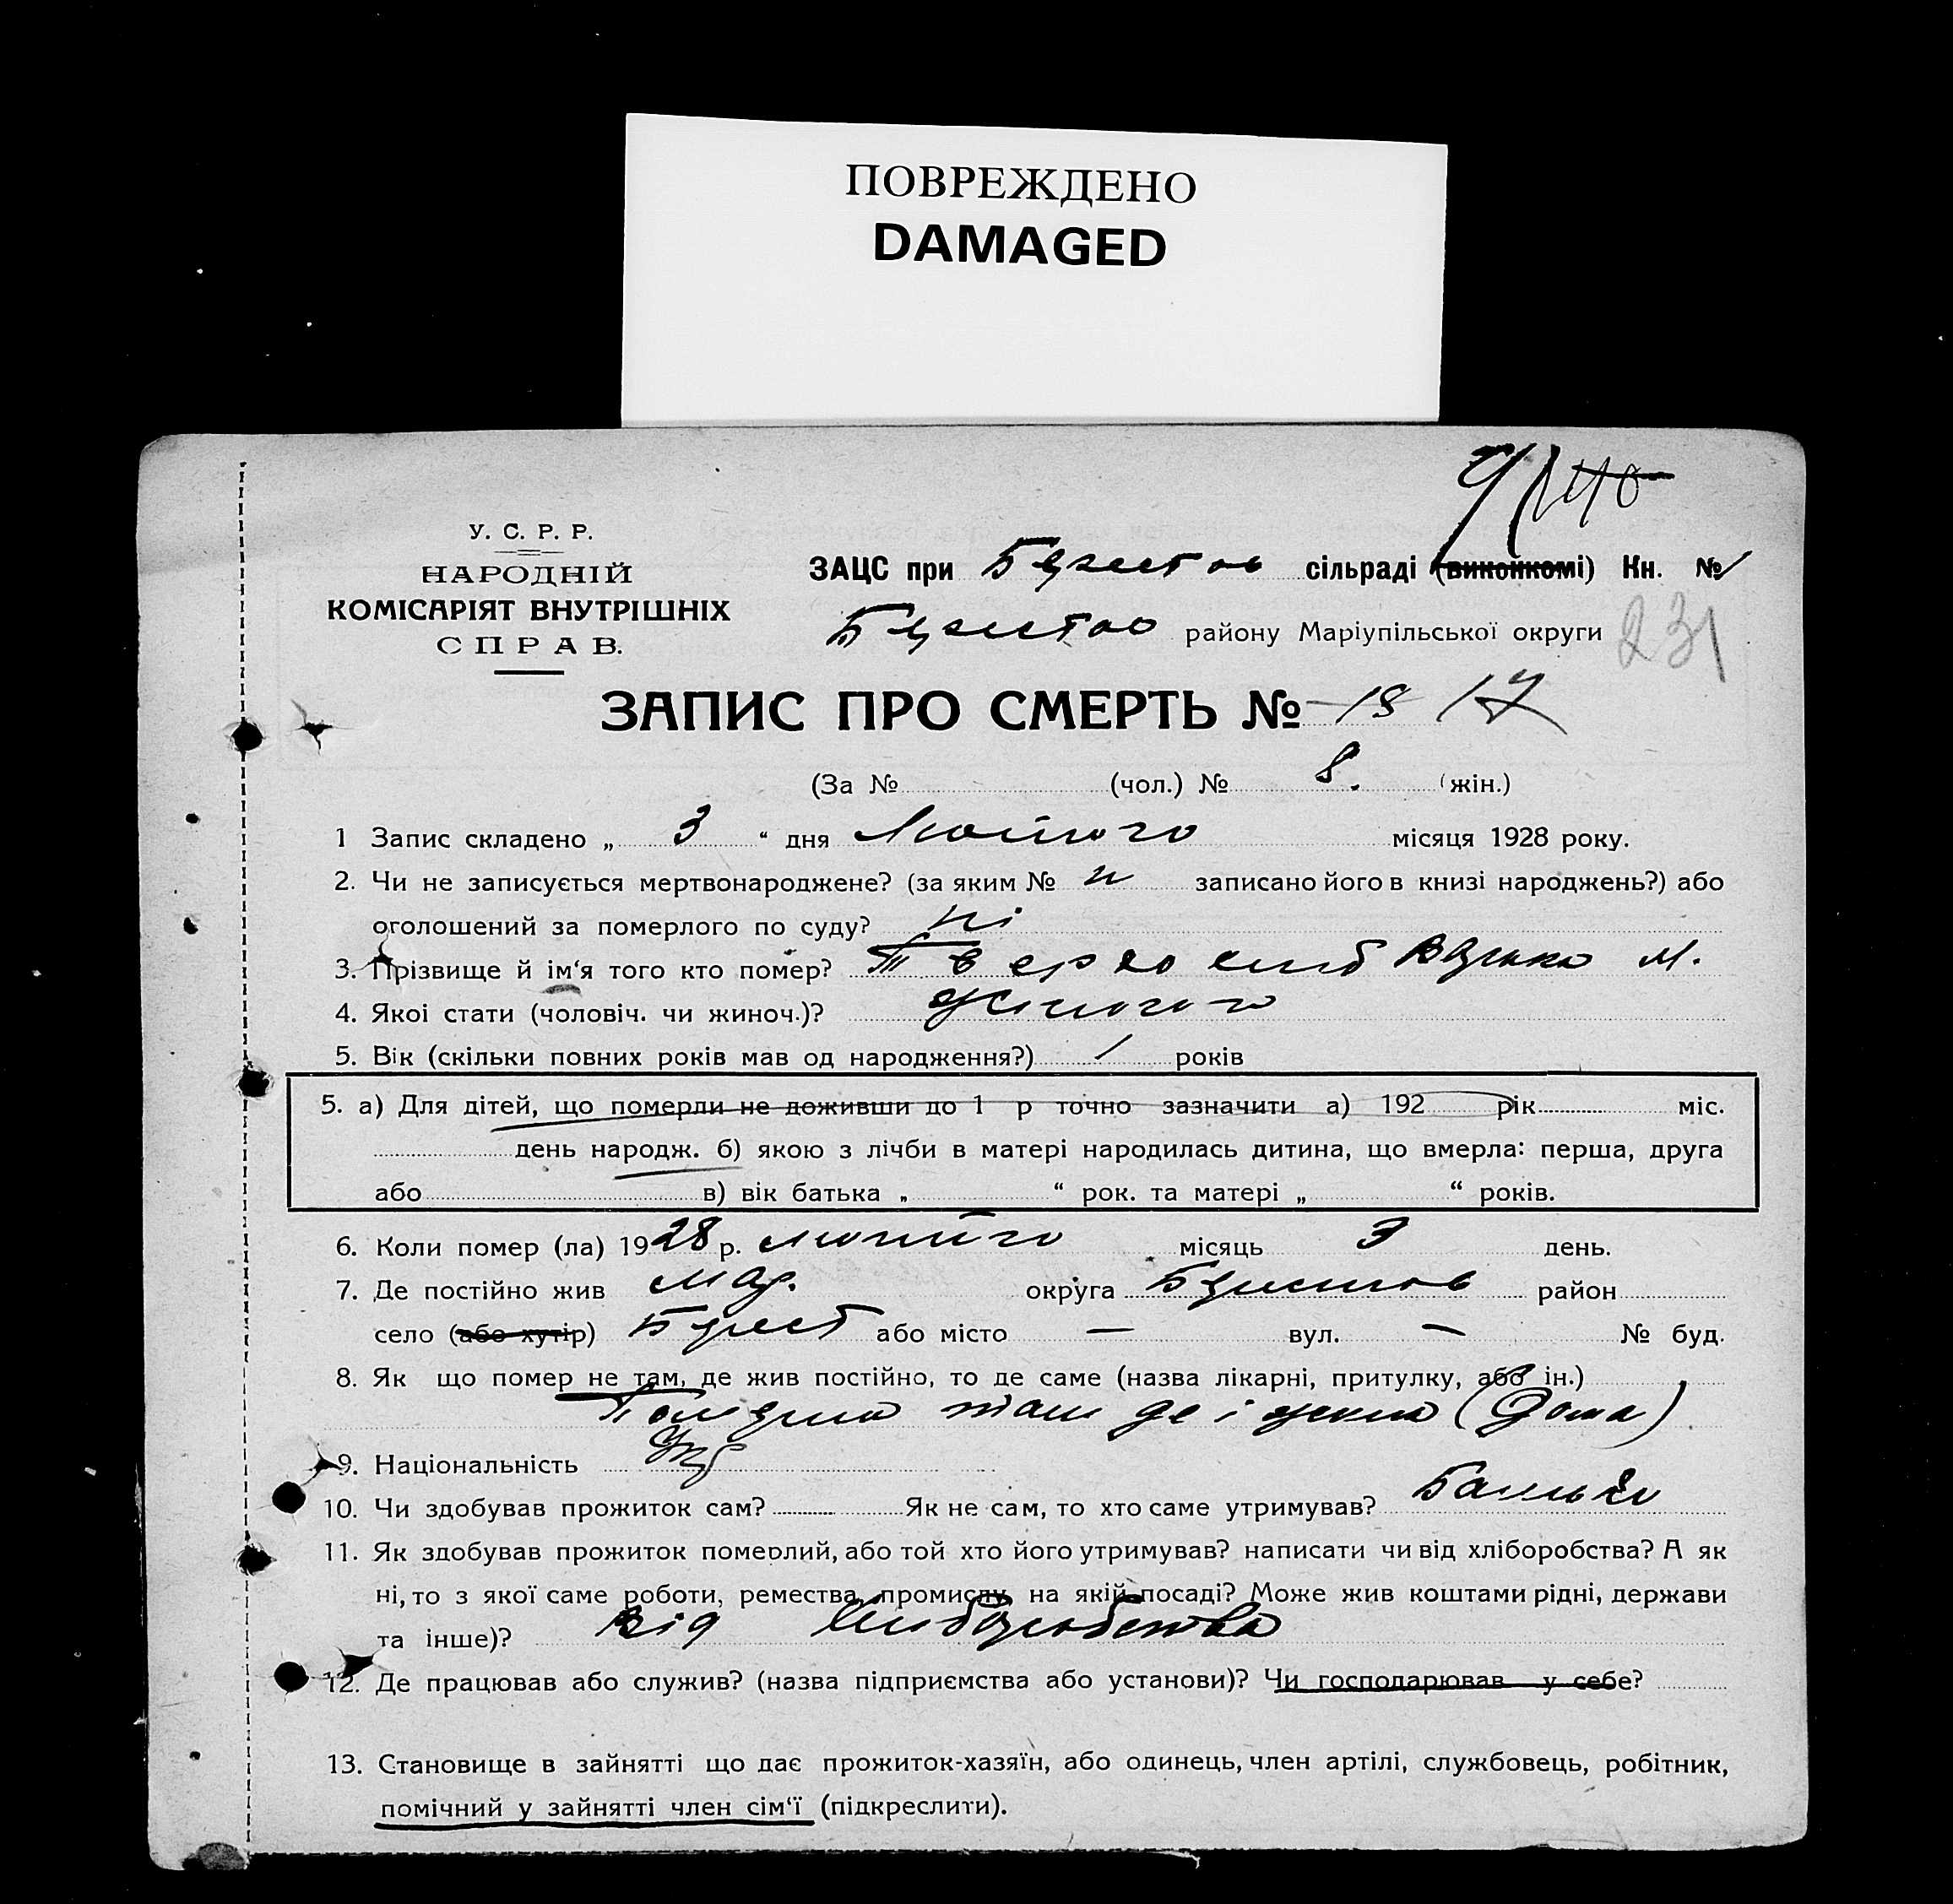 ПОВРЕЖДЕНО
DAMAGED
У. С. Р. Р.
НАРОДНІЙ
КОМІСАРІЯТ ВНУТРІШНІХ
СПРАВ.
ЗАЦС при Берестов сільраді (виконкомі) Кн. №
Берестов району Маріупільської округи
231
ЗАПИС ПРО СМЕРТЬ № 17
(За № (чол.) № 8. (жін.)
1 Запис складено „ 3 “ дня Лютого місяця 1928 року.
2. Чи не записується мертвонароджене? (за яким № записано його в книзі народжень?) або
оголошений за померлого по суду? ні
3. Прізвище й ім‘я того кто помер? М.
4. Якоі стати (чоловіч. чи жиноч.)? жіночого
5. Вік (скільки повних років мав од народження?) 1 років
5. а) Для дітей, що померли не доживши до 1 р точно зазначити а) 192 рік міс.
день народж. б) якою з лічби в матері народилась дитина, що вмерла: перша, друга
або в) вік батька „ “ рок. та матері „ “ років.
6. Коли помер (ла) 1928 р. лютого місяць 3 день.
7. Де постійно жив Мар. округа Берестов район
село (або хутір) Берест або місто — вул. — № буд.
8. Як що помер не там, де жив постійно, то де саме (назва лікарні, притулку, або ін.)
Померла там де і жила (Дома)
9. Національність Укр
10. Чи здобував прожиток сам? Як не сам, то хто саме утримував? Батько
11. Як здобував прожиток померлий, або той хто його утримував? написати чи від хліборобства? А як
ні, то з якої саме роботи, ремества, промислу, на якій посаді? Може жив коштами рідні, держави
та інше)? Від хліборобства
12. Де працював або служив? (назва підприємства або установи)? Чи господарював у себе?
13. Становище в зайнятті що дає прожиток-хазяїн, або одинець, член артілі, службовець, робітник,
помічний у зайнятті член сім‘ї (підкреслити).